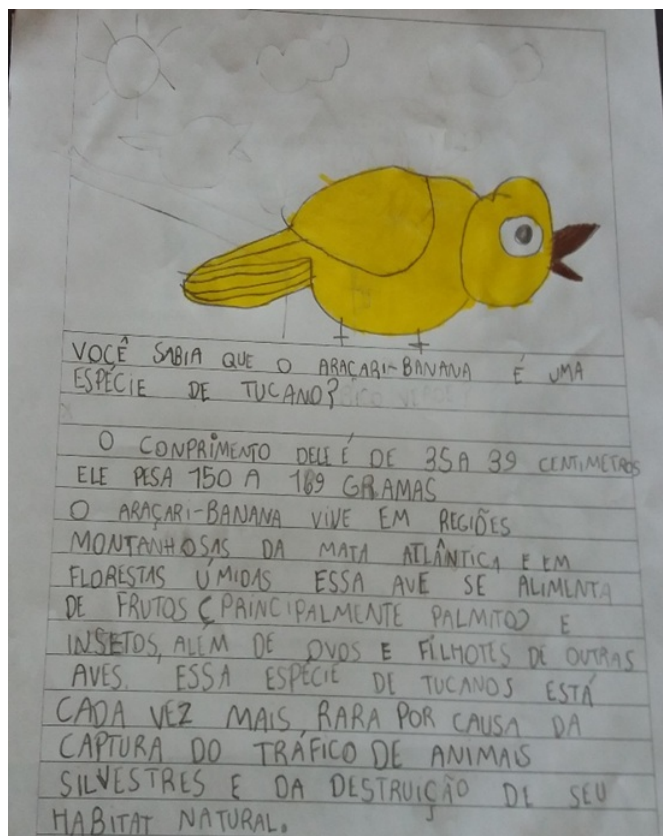 VOCÊ SABIA QUE O ARAÇARI-BANANA É UMA
ESPÉCIE DE TUCANO?
O CONPRIMENTO DELE É DE 35 A 39 CENTIMETROS
ELE PESA 150 A 189 GRAMAS
O ARAÇARI-BANANA VIVE EM REGIÕES
MONTANHOSAS DA MATA ATLÂNTICA E EM
FLORESTAS ÚMIDAS ESSA AVE SE ALIMENTA
DE FRUTOS (PRINCIPALMENTE PALMITO) E
INSETOS, ALÉM DE OVOS E FILHOTES DE OUTRAS
AVES. ESSA ESPÉCIE DE TUCANOS ESTÁ
CADA VEZ MAIS RARA POR CAUSA DA
CAPTURA DO TRÁFICO DE ANIMAIS
SILVESTRES E DA DESTRUIÇÃO DE SEU
HABITAT NATURAL.